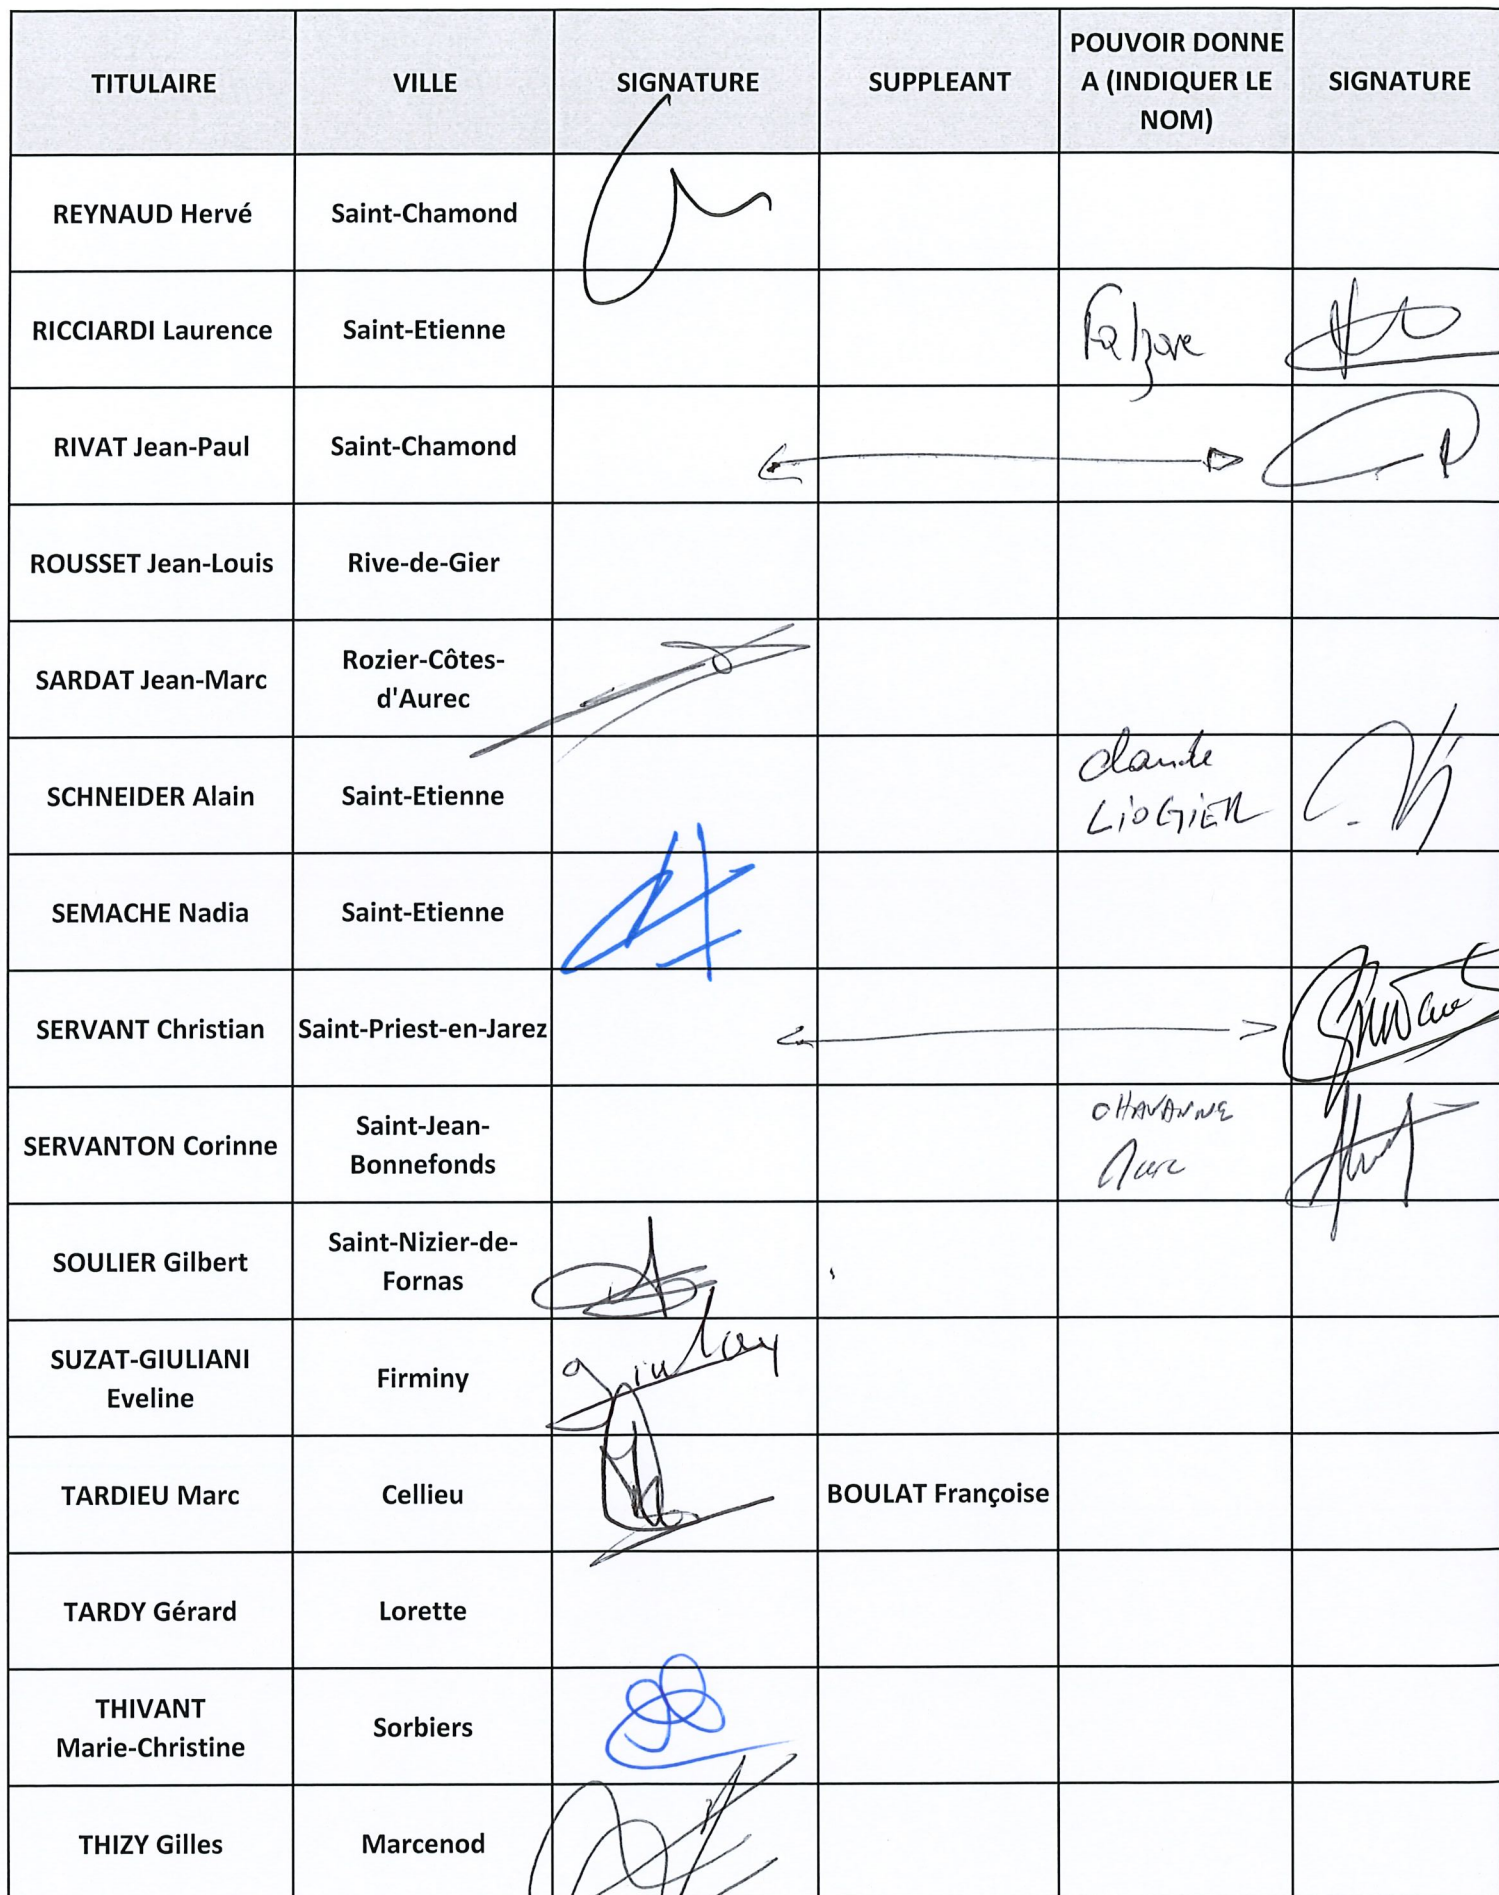 TITULAIRE VILLE SIGNATURE SUPPLEANT POUVOIR DONNE A (INDIQUER LE NOM) SIGNATURE
REYNAUD Hervé Saint-Chamond
RICCIARDI Laurence Saint-Etienne
RIVAT Jean-Paul Saint-Chamond
ROUSSET Jean-Louis Rive-de-Gier
SARDAT Jean-Marc Rozier-Côtes-
d'Aurec
SCHNEIDER Alain Saint-Etienne Claude
LIOGIER
SEMACHE Nadia Saint-Etienne
SERVANT Christian Saint-Priest-en-Jarez
SERVANTON Corinne Saint-Jean-
Bonnefonds
CHAVANNE
Marc
SOULIER Gilbert Saint-Nizier-de-
Fornas
SUZAT-GIULIANI
Eveline Firminy
TARDIEU Marc Cellieu BOULAT Françoise
TARDY Gérard Lorette
THIVANT
Marie-Christine Sorbiers
THIZY Gilles Marcenod